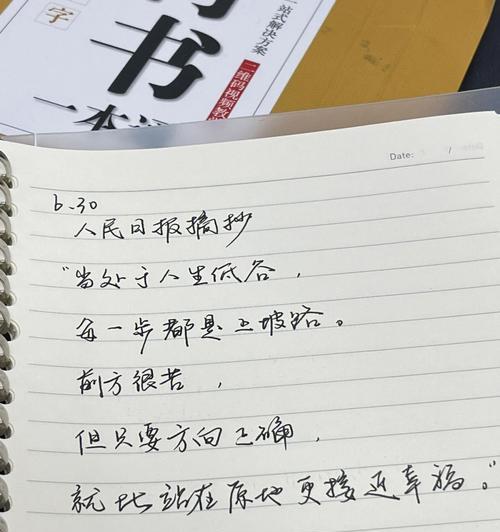 书
字
一站式解决方案
二维码视频教
一本
Date: /
6.30
人民日报摘抄
“当处于人生低谷，
每一步都是上坡路。
前方很苦，
但只要方向正确，
就比站在原地更接近幸福。”